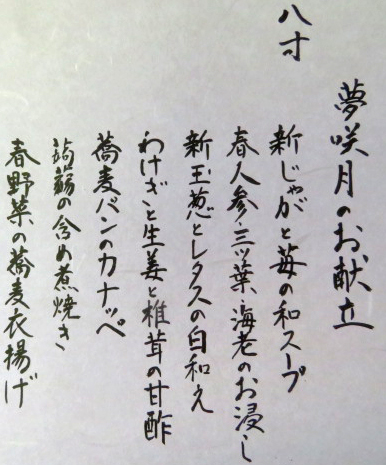 夢咲月のお献立
八寸
新じゃがと苺の和スープ
春人参・三ッ葉、海老のお浸し
新玉葱とレタスの白和え
わけぎと生姜と椎茸の甘酢
蕎麦パンのカナッペ
蒟蒻の含め煮焼き
春野菜の蕎麦衣揚げ